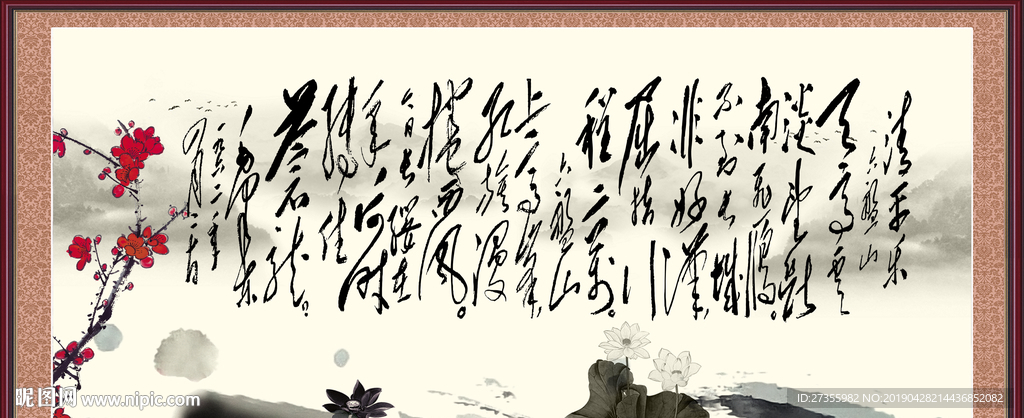 清平乐
六盘山
天高云
淡望断
南飞雁。
不到长城
非好汉,
屈指行
程二万。
六盘山
上高峰,
红旗漫
捲西风。
今日长缨在
手,何时
缚住
苍龙。
毛泽东
昵图网 www.nipic.com
ID:27355982 NO:20190428214436852082